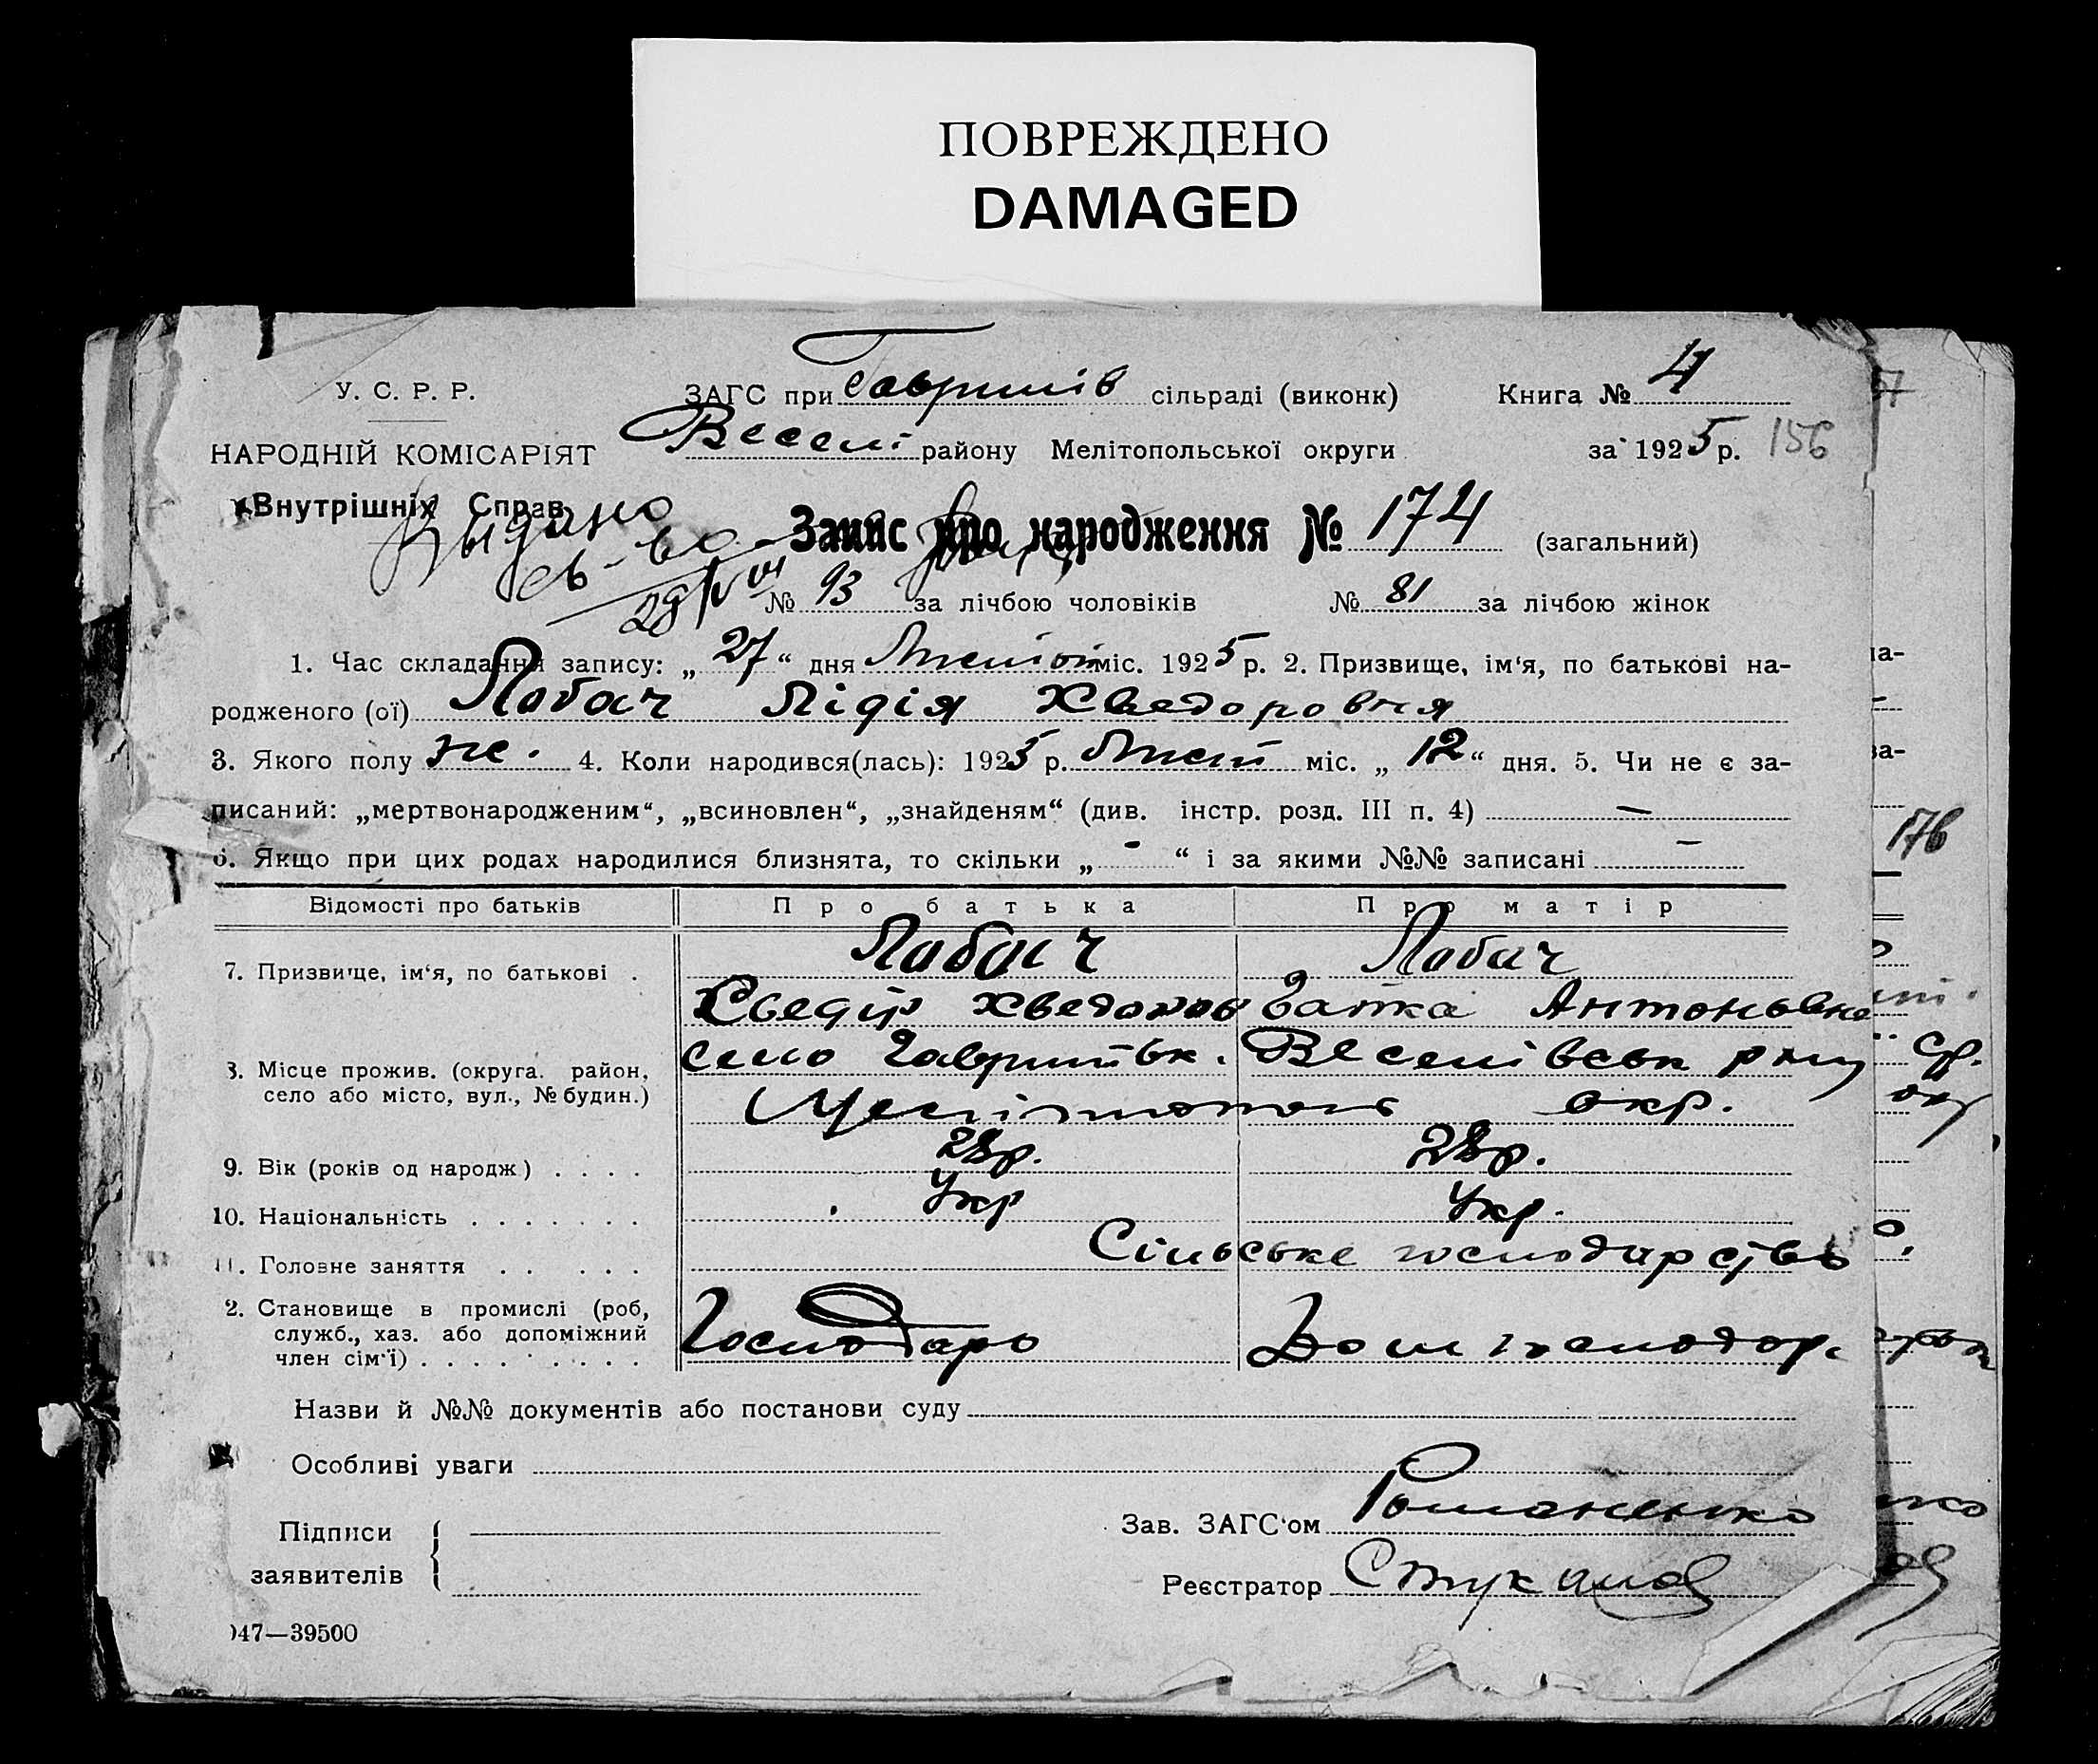 ПОВРЕЖДЕНО
DAMAGED
У. С. Р. Р. ЗАГС при Гаврилів сільраді (виконк) Книга № 4
НАРОДНІЙ КОМІСАРІЯТ Веселі району Мелітопольської округи за 1925 р. 156
Внутрішніх Справ
Выдано
св-во
Запис про народження № 174 (загальний)
№ 93 за лічбою чоловіків № 81 за лічбою жінок
1. Час складання запису: „ 27 “ дня міс. 1925 р. 2. Призвище, ім‘я, по батькові на-
родженого (ої) Лабач Лідія Хведоровня
3. Якого полу же. 4. Коли народився(лась): 1925 р. Лист міс. „ 12 “ дня. 5. Чи не є за-
писаний: „мертвонародженим“, „всиновлен“, „знайденям“ (див. інстр. розд. III п. 4) —
6. Якщо при цих родах народилися близнята, то скільки „ - “ і за якими №№ записані —
Відомості про батьків Про батька Про матір
7. Призвище, ім‘я, по батькові . Лабач Лабач
Хведір Хведоров Антоновна
8. Місце прожив. (округа. район, село або місто, вул., № будин.) село Гаврилівк. Веселівськ р-ну
Мелітополь окр.
9. Вік (років од народж) . . . . 28 р. 28 р.
10. Національність . . . . . . . Укр Укр.
11. Головне заняття . . . . . Сільське господарство
2. Становище в промислі (роб, служб., хаз. або допоміжний член сім‘ї) . . . . . . . . . . Господарь Дом господар.
Назви й №№ документів або постанови суду
Особливі уваги
Підписи заявителів
Зав. ЗАГС‘ом Романенко
Реєстратор Стукалов
)47—39500
176